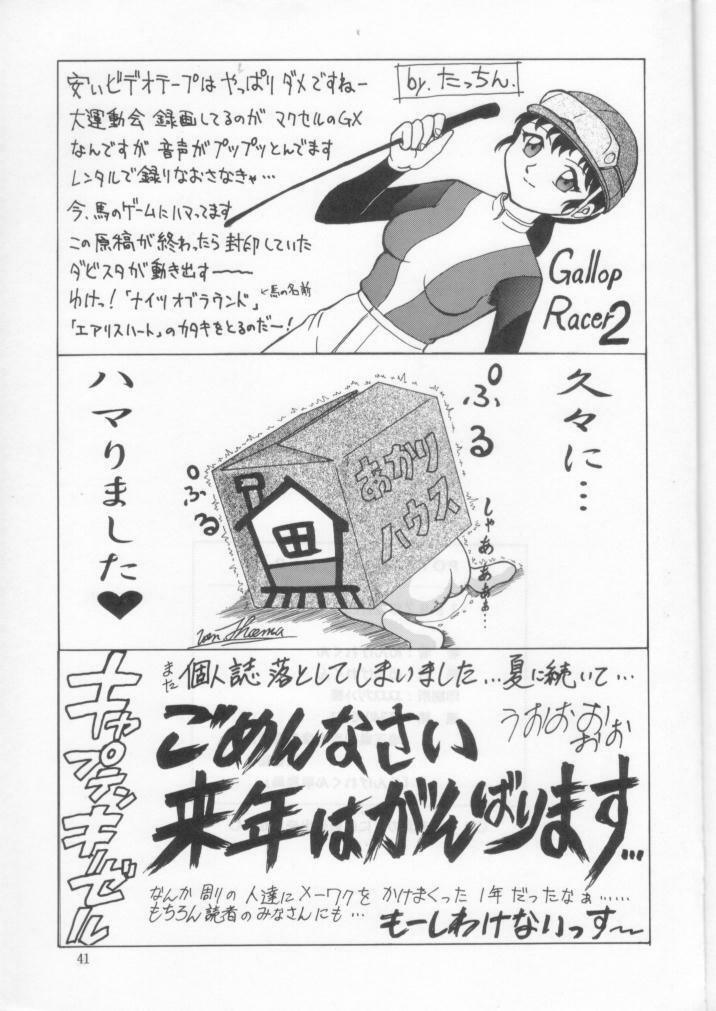 安いビデオテープは やっぱり ダメですねー
by. たっちん.
大運動会 録画してるのが マクセルのGX
なんですが 音声がプップッとんでます
レンタルで録りなおさなきゃ…
今、馬のゲームにハマってます
この原稿が終わったら 封印していた
ダビスタが動き出す〜〜
ゆけっ!「ナイツオブラウンド」
馬の名前
「エアリスハート」のカタキをとるのだー!
Gallop
Racer2
久々に…
ハマりました♥
ぷるぷる
あかり
ハウス
しゃあぁぁぁ…
キャプテンキルゼル
また 個人誌 落としてしまいました…夏に続いて…
ごめんなさい
うおおお
おお
来年はがんばります…
なんか 周りの 人達に メーワクを かけまくった 1年 だったなぁ……
もちろん 読者 の みなさん にも…
もーしわけないっす〜
41